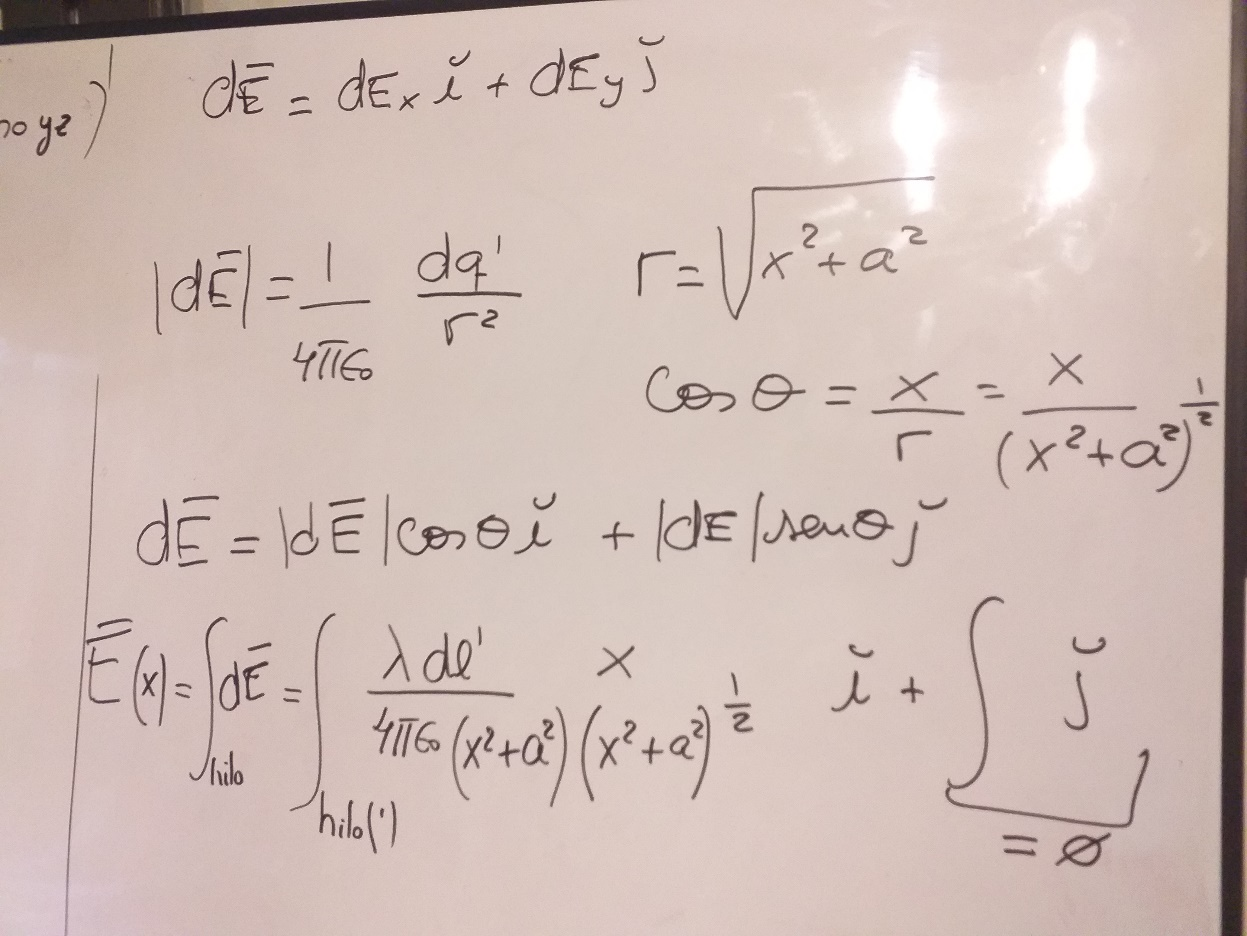 dE̅ = dEx ǐ + dEy ǰ
yz)
|dE̅| = 1/4πϵ₀ dq'/r² r = √(x² + a²)
cos θ = x/r = x/(x² + a²)^½
dE̅ = |dE̅| cos θ ǐ + |dE| sen θ ǰ
E̅(x) = ∫hilo dE̅ = ∫hilo(') λ dl' x / 4πϵ₀ (x² + a²) (x² + a²)^½ ǐ + ∫ ǰ
= ∅